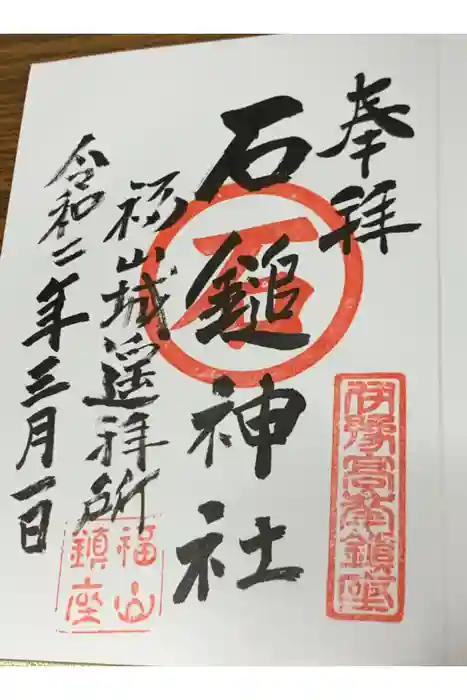 奉拝
石鎚神社
福山城遥拝所
令和二年三月一日
石
伊豫高嶺鎮座
福山
鎮座